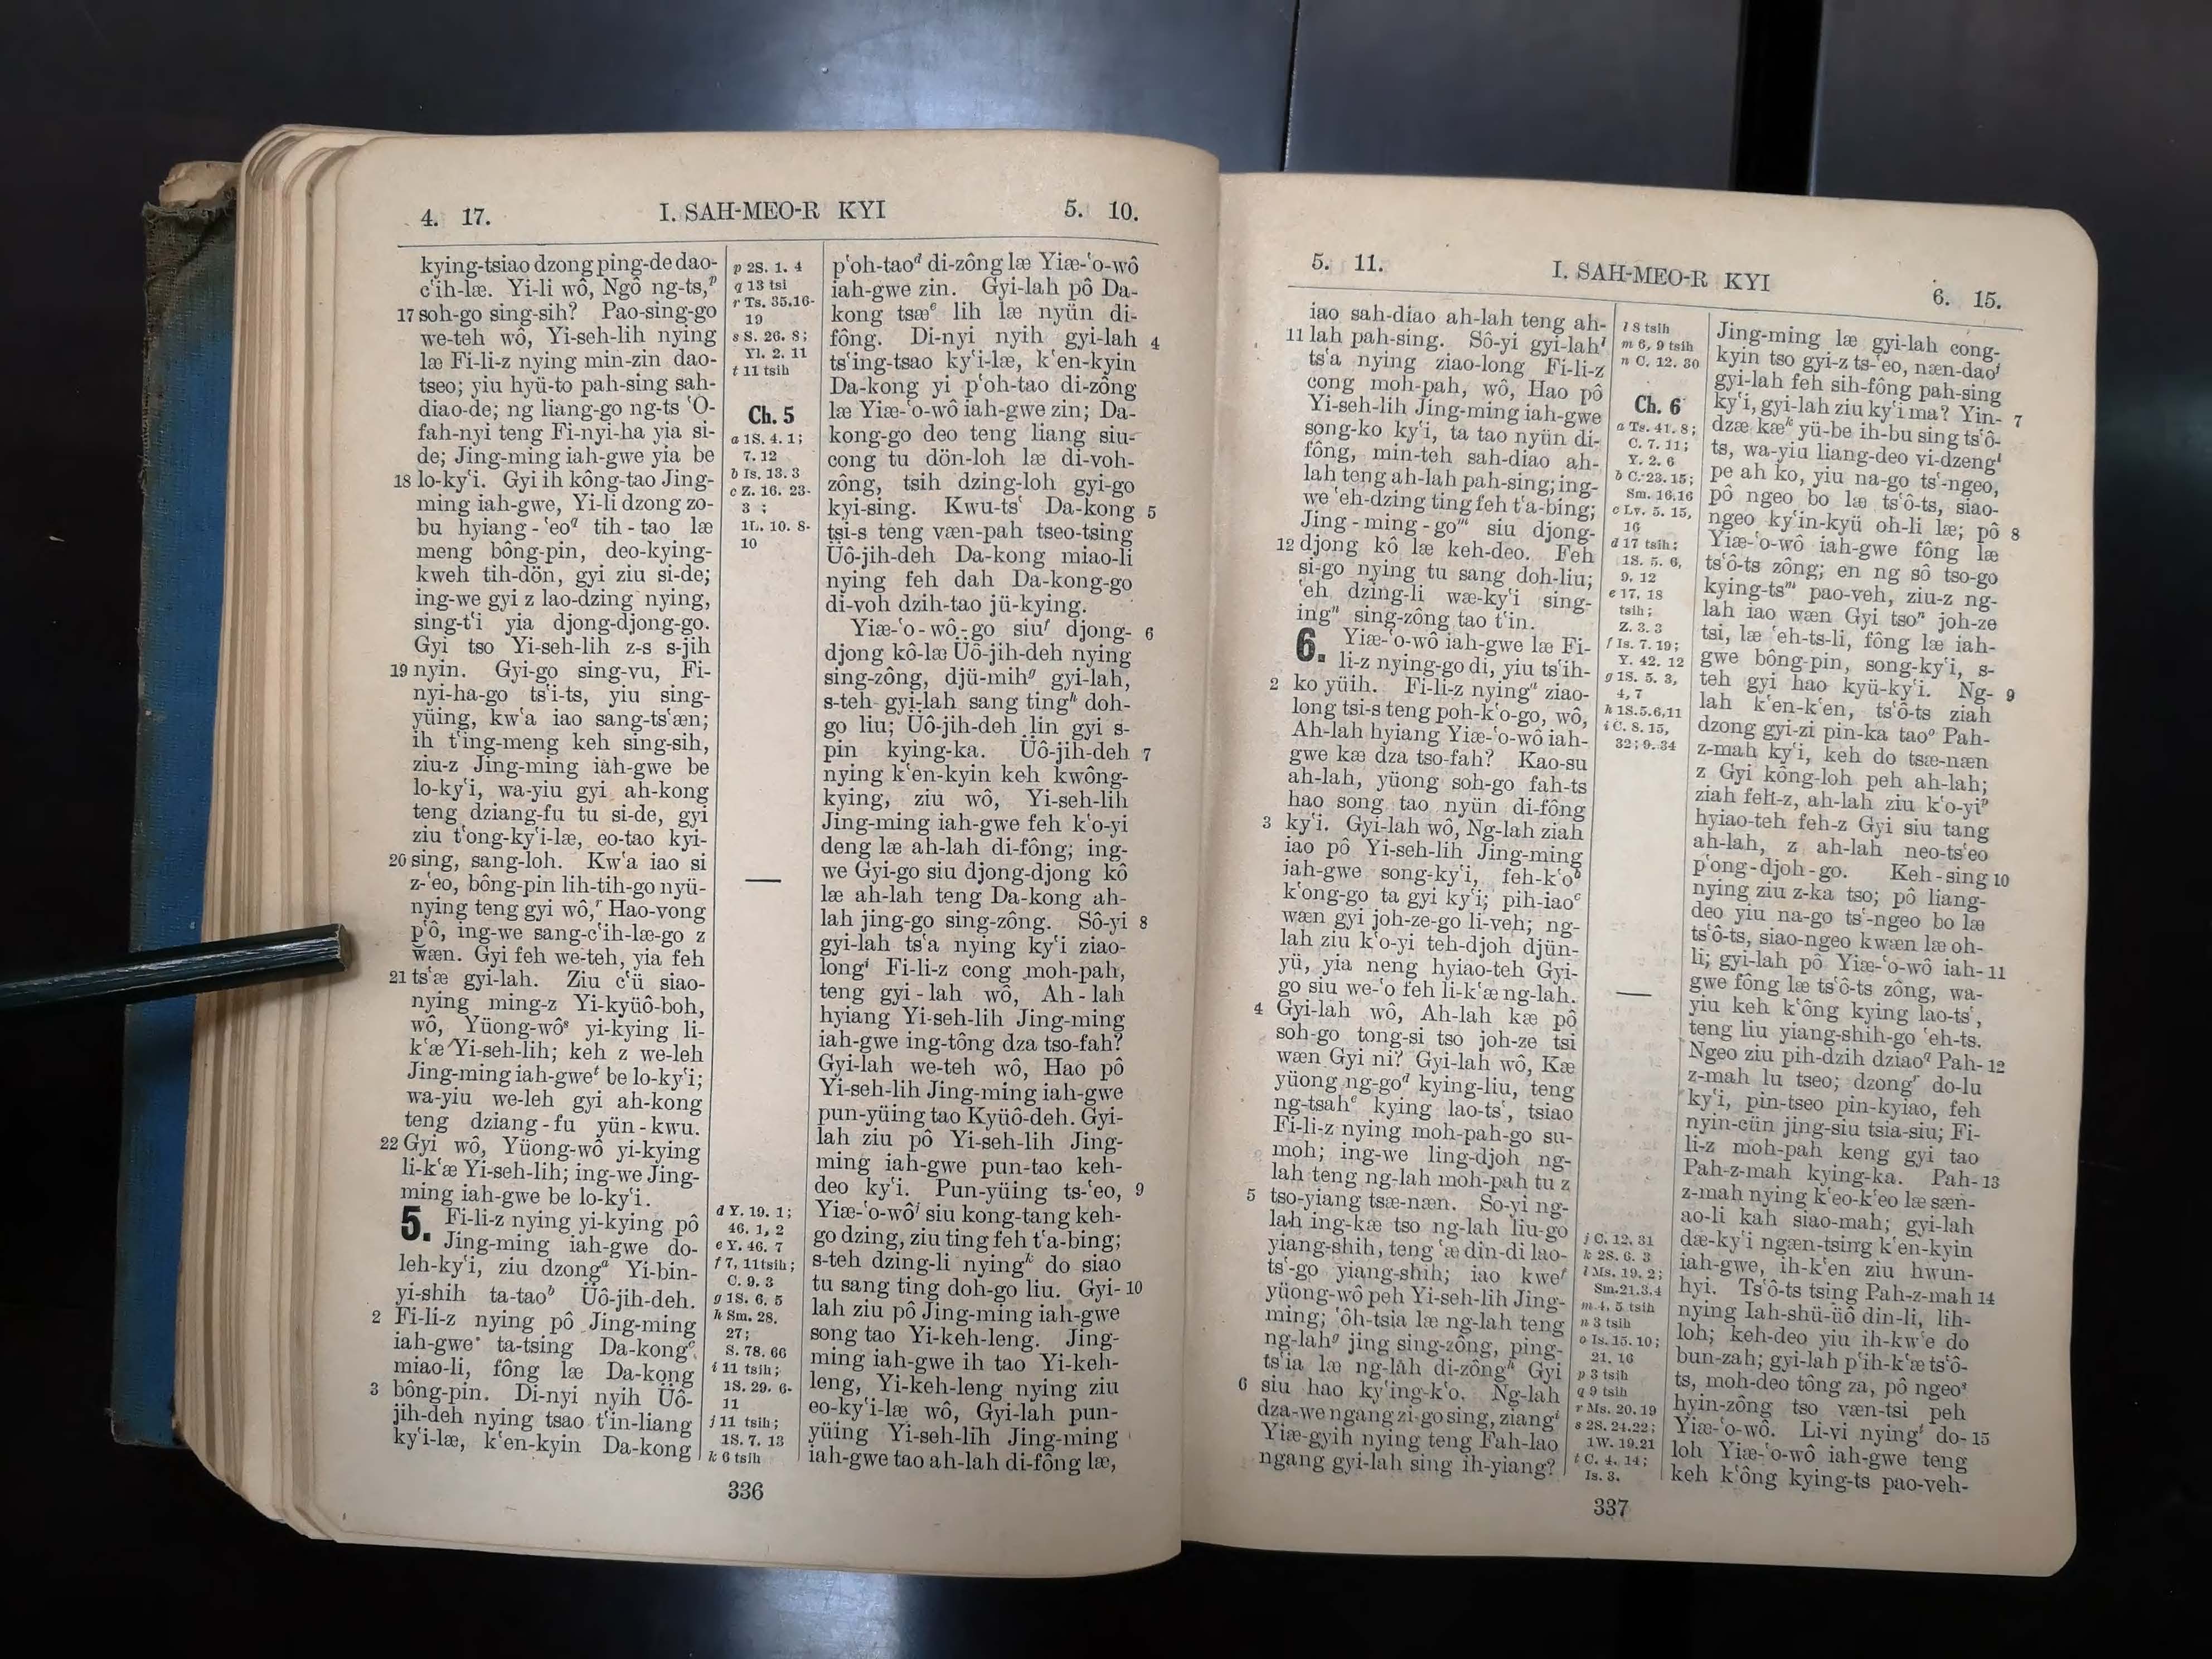 4. 17.
I. SAH-MEO-R KYI
5. 10.
kying-tsiao dzong ping-de dao-
c‘ih-læ. Yi-li wô, Ngô ng-ts,ᵖ
17 soh-go sing-sih? Pao-sing-go
we-teh wô, Yi-seh-lih nying
læ Fi-li-z nying min-zin dao-
tseo; yiu hyü-to pah-sing sah-
diao-de; ng liang-go ng-ts ‘O-
fah-nyi teng Fi-nyi-ha yia si-
de; Jing-ming iah-gwe yia be
18 lo-ky‘i. Gyi ih kông-tao Jing-
ming iah-gwe, Yi-li dzong zo-
bu hyiang-‘eoᵍ tih-tao læ
meng bông-pin, deo-kying-
kweh tih-dön, gyi ziu si-de;
ing-we gyi z lao-dzing nying,
sing-t‘i yia djong-djong-go.
Gyi tso Yi-seh-lih z-s s-jih
19 nyin. Gyi-go sing-vu, Fi-
nyi-ha-go ts‘i-ts, yiu sing-
yüing, kw‘a iao sang-ts‘æn;
ih t‘ing-meng keh sing-sih,
ziu-z Jing-ming iah-gwe be
lo-ky‘i, wa-yiu gyi ah-kong
teng dziang-fu tu si-de, gyi
ziu t‘ong-ky‘i-læ, eo-tao kyi-
20 sing, sang-loh. Kw‘a iao si
z-‘eo, bông-pin lih-tih-go nyü-
nying teng gyi wô,ʳ Hao-vong
p‘ô, ing-we sang-c‘ih-læ-go z
wæn. Gyi feh we-teh, yia feh
21 ts‘æ gyi-lah. Ziu c‘ü siao-
nying ming-z Yi-kyüô-boh,
wô, Yüong-wôˢ yi-kying li-
k‘æ Yi-seh-lih; keh z we-leh
Jing-ming iah-gweᵗ be lo-ky‘i;
wa-yiu we-leh gyi ah-kong
teng dziang-fu yün-kwu.
22 Gyi wô, Yüong-wô yi-kying
li-k‘æ Yi-seh-lih; ing-we Jing-
ming iah-gwe be lo-ky‘i.
5. Fi-li-z nying yi-kying pô
Jing-ming iah-gwe do-
leh-ky‘i, ziu dzongᵃ Yi-bin-
yi-shih ta-taoᵇ Üô-jih-deh.
2 Fi-li-z nying pô Jing-ming
iah-gwe ta-tsing Da-kongᶜ
miao-li, fông læ Da-kong
3 bông-pin. Di-nyi nyih Üô-
jih-deh nying tsao t‘in-liang
ky‘i-læ, k‘en-kyin Da-kong
p 2S. 1. 4
q 13 tsi
r Ts. 35.16-
19
s S. 26. 8;
Yl. 2. 11
t 11 tsih
Ch. 5
a 1S. 4. 1;
7. 12
b Is. 13. 3
c Z. 16. 23-
3 ;
1L. 10. 8-
10
d Y. 19. 1;
46. 1, 2
e Y. 46. 7
f 7, 11tsih;
C. 9. 3
g 1S. 6. 5
h Sm. 28.
27;
S. 78. 66
i 11 tsih;
1S. 29. 6-
11
j 11 tsih;
1S. 7. 13
k 6 tsih
p‘oh-taoᵈ di-zông læ Yiæ-‘o-wô
iah-gwe zin. Gyi-lah pô Da-
kong tsæᵉ lih læ nyün di-
fông. Di-nyi nyih gyi-lah 4
ts‘ing-tsao ky‘i-læ, k‘en-kyin
Da-kong yi p‘oh-tao di-zông
læ Yiæ-‘o-wô iah-gwe zin; Da-
kong-go deo teng liang siu-
cong tu dön-loh læ di-voh-
zông, tsih dzing-loh gyi-go
kyi-sing. Kwu-ts‘ Da-kong 5
tsi-s teng væn-pah tseo-tsing
Üô-jih-deh Da-kong miao-li
nying feh dah Da-kong-go
di-voh dzih-tao jü-kying.
Yiæ-‘o-wô-go siuᶠ djong- 6
djong kô-læ Üô-jih-deh nying
sing-zông, djü-mihᵍ gyi-lah,
s-teh gyi-lah sang tingʰ doh-
go liu; Üô-jih-deh lin gyi s-
pin kying-ka. Üô-jih-deh 7
nying k‘en-kyin keh kwông-
kying, ziu wô, Yi-seh-lih
Jing-ming iah-gwe feh k‘o-yi
deng læ ah-lah di-fông; ing-
we Gyi-go siu djong-djong kô
læ ah-lah teng Da-kong ah-
lah jing-go sing-zông. Sô-yi 8
gyi-lah ts‘a nying ky‘i ziao-
longⁱ Fi-li-z cong moh-pah,
teng gyi-lah wô, Ah-lah
hyiang Yi-seh-lih Jing-ming
iah-gwe ing-tông dza tso-fah?
Gyi-lah we-teh wô, Hao pô
Yi-seh-lih Jing-ming iah-gwe
pun-yüing tao Kyüô-deh. Gyi-
lah ziu pô Yi-seh-lih Jing-
ming iah-gwe pun-tao keh-
deo ky‘i. Pun-yüing ts-‘eo, 9
Yiæ-‘o-wôʲ siu kong-tang keh-
go dzing, ziu ting feh t‘a-bing;
s-teh dzing-li nyingᵏ do siao
tu sang ting doh-go liu. Gyi- 10
lah ziu pô Jing-ming iah-gwe
song tao Yi-keh-leng. Jing-
ming iah-gwe ih tao Yi-keh-
leng, Yi-keh-leng nying ziu
eo-ky‘i-læ wô, Gyi-lah pun-
yüing Yi-seh-lih Jing-ming
iah-gwe tao ah-lah di-fông læ,
336
5. 11.
I. SAH-MEO-R KYI
6. 15.
iao sah-diao ah-lah teng ah-
11 lah pah-sing. Sô-yi gyi-lahˡ
ts‘a nying ziao-long Fi-li-z
cong moh-pah, wô, Hao pô
Yi-seh-lih Jing-ming iah-gwe
song-ko ky‘i, ta tao nyün di-
fông, min-teh sah-diao ah-
lah teng ah-lah pah-sing; ing-
we ‘eh-dzing ting feh t‘a-bing;
Jing-ming-goᵐ siu djong-
12 djong kô læ keh-deo. Feh
si-go nying tu sang doh-liu;
‘eh dzing-li wæ-ky‘i sing-
ingⁿ sing-zông tao t‘in.
6. Yiæ-‘o-wô iah-gwe læ Fi-
li-z nying-go di, yiu ts‘ih-
2 ko yüih. Fi-li-z nyingᵃ ziao-
long tsi-s teng poh-k‘o-go, wô,
Ah-lah hyiang Yiæ-‘o-wô iah-
gwe kæ dza tso-fah? Kao-su
ah-lah, yüong soh-go fah-ts
hao song tao nyün di-fông
3 ky‘i. Gyi-lah wô, Ng-lah ziah
iao pô Yi-seh-lih Jing-ming
iah-gwe song-ky‘i, feh-k‘oᵇ
k‘ong-go ta gyi ky‘i; pih-iaoᶜ
wæn gyi joh-ze-go li-veh; ng-
lah ziu k‘o-yi teh-djoh djün-
yü, yia neng hyiao-teh Gyi-
go siu we-‘o feh li-k‘æ ng-lah.
4 Gyi-lah wô, Ah-lah kæ pô
soh-go tong-si tso joh-ze tsi
wæn Gyi ni? Gyi-lah wô, Kæ
yüong ng-goᵈ kying-liu, teng
ng-tsahᵉ kying lao-ts‘, tsiao
Fi-li-z nying moh-pah-go su-
moh; ing-we ling-djoh ng-
lah teng ng-lah moh-pah tu z
5 tso-yiang tsæ-næn. So-yi ng-
lah ing-kæ tso ng-lah liu-go
yiang-shih, teng ‘æ din-di lao-
ts‘-go yiang-shih; iao kweᶠ
yüong-wô peh Yi-seh-lih Jing-
ming; ‘ôh-tsia læ ng-lah teng
ng-lahᵍ jing sing-zông, ping-
ts‘ia læ ng-lah di-zôngʰ Gyi
6 siu hao ky‘ing-k‘o. Ng-lah
dza-we ngang zi-go sing, ziangⁱ
Yiæ-gyih nying teng Fah-lao
ngang gyi-lah sing ih-yiang?
l 8 tsih
m 6, 9 tsih
n C. 12. 30
Ch. 6
a Ts. 41. 8;
C. 7. 11;
Y. 2. 6
b C. 23. 15;
Sm. 16.16
c Lv. 5. 15,
16
d 17 tsih;
1S. 5. 6,
9, 12
e 17, 18
tsih;
Z. 3. 3
f Is. 7. 19;
Y. 42. 12
g 1S. 5. 3,
4, 7
h 1S.5.6,11
i C. 8. 15,
32; 9. 34
j C. 12. 31
k 2S. 6. 3
l Ms. 19. 2;
Sm.21.3,4
m 4, 5 tsih
n 3 tsih
o Is. 15. 10;
21. 16
p 3 tsih
q 9 tsih
r Ms. 20. 19
s 2S. 24.22;
1W. 19.21
t C. 4. 14;
Is. 3.
Jing-ming læ gyi-lah cong-
kyin tso gyi-z ts-‘eo, næn-daoʲ
gyi-lah feh sih-fông pah-sing
ky‘i, gyi-lah ziu ky‘i ma? Yin- 7
dzæ kæᵏ yü-be ih-bu sing ts‘ô-
ts, wa-yiu liang-deo vi-dzengˡ
pe ah ko, yiu na-go ts‘-ngeo,
pô ngeo bo læ ts‘ô-ts, siao-
ngeo ky‘in-kyü oh-li læ; pô 8
Yiæ-‘o-wô iah-gwe fông læ
ts‘ô-ts zông; en ng sô tso-go
kying-tsᵐ pao-veh, ziu-z ng-
lah iao wæn Gyi tsoⁿ joh-ze
tsi, læ ‘eh-ts-li, fông læ iah-
gwe bông-pin, song-ky‘i, s-
teh gyi hao kyü-ky‘i. Ng- 9
lah k‘en-k‘en, ts‘ô-ts ziah
dzong gyi-zi pin-ka taoᵒ Pah-
z-mah ky‘i, keh do tsæ-næn
z Gyi kông-loh peh ah-lah;
ziah feh-z, ah-lah ziu k‘o-yiᵖ
hyiao-teh feh-z Gyi siu tang
ah-lah, z ah-lah neo-ts‘eo
p‘ong-djoh-go. Keh-sing 10
nying ziu z-ka tso; pô liang-
deo yiu na-go ts‘-ngeo bo læ
ts‘ô-ts, siao-ngeo kwæn læ oh-
li; gyi-lah pô Yiæ-‘o-wô iah- 11
gwe fông læ ts‘ô-ts zông, wa-
yiu keh k‘ông kying lao-ts‘,
teng liu yiang-shih-go ‘eh-ts.
Ngeo ziu pih-dzih dziaoᵍ Pah- 12
z-mah lu tseo; dzongʳ do-lu
ky‘i, pin-tseo pin-kyiao, feh
nyin-cün jing-siu tsia-siu; Fi-
li-z moh-pah keng gyi tao
Pah-z-mah kying-ka. Pah- 13
z-mah nying k‘eo-k‘eo læ sæn-
ao-li kah siao-mah; gyi-lah
dæ-ky‘i ngæn-tsing k‘en-kyin
iah-gwe, ih-k‘en ziu hwun-
hyi. Ts‘ô-ts tsing Pah-z-mah 14
nying Iah-shü-üô din-li, lih-
loh; keh-deo yiu ih-kw‘e do
bun-zah; gyi-lah p‘ih-k‘æ ts‘ô-
ts, moh-deo tông za, pô ngeoˢ
hyin-zông tso væn-tsi peh
Yiæ-‘o-wô. Li-vi nyingᵗ do- 15
loh Yiæ-‘o-wô iah-gwe teng
keh k‘ông kying-ts pao-veh-
337